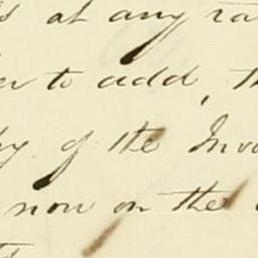 at any
to add, th
of the Invo
now on the